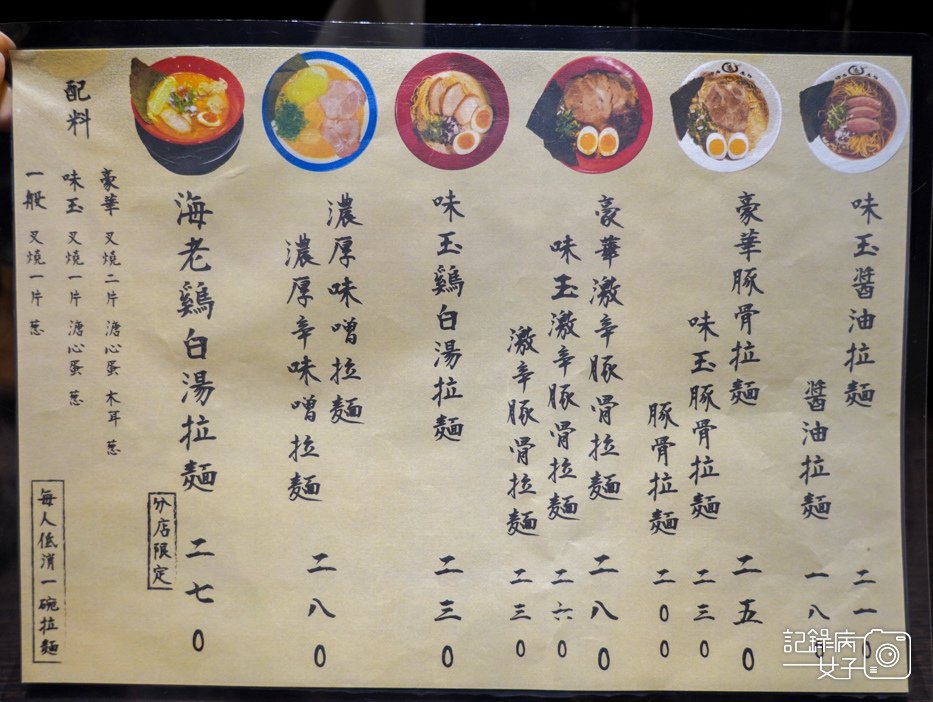 味玉醬油拉麵 二一0
醬油拉麵 一八0
豪華豚骨拉麵 二五0
味玉豚骨拉麵 二三0
豚骨拉麵 二00
豪華激辛豚骨拉麵 二八0
味玉激辛豚骨拉麵 二六0
激辛豚骨拉麵 二三0
味玉鷄白湯拉麵 二三0
濃厚味噌拉麵
濃厚辛味噌拉麵
二八0
海老鷄白湯拉麵 二七0
分店限定
配料
豪華 叉燒二片 溏心蛋 木耳 蔥
味玉 叉燒一片 溏心蛋 蔥
一般 叉燒一片 蔥
每人低消一碗拉麵
記錄病
女子